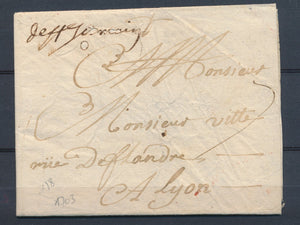 deSt Germain
A Monsieur
Monsieur vitte
rüe Deflandre
A lyon
118
1703